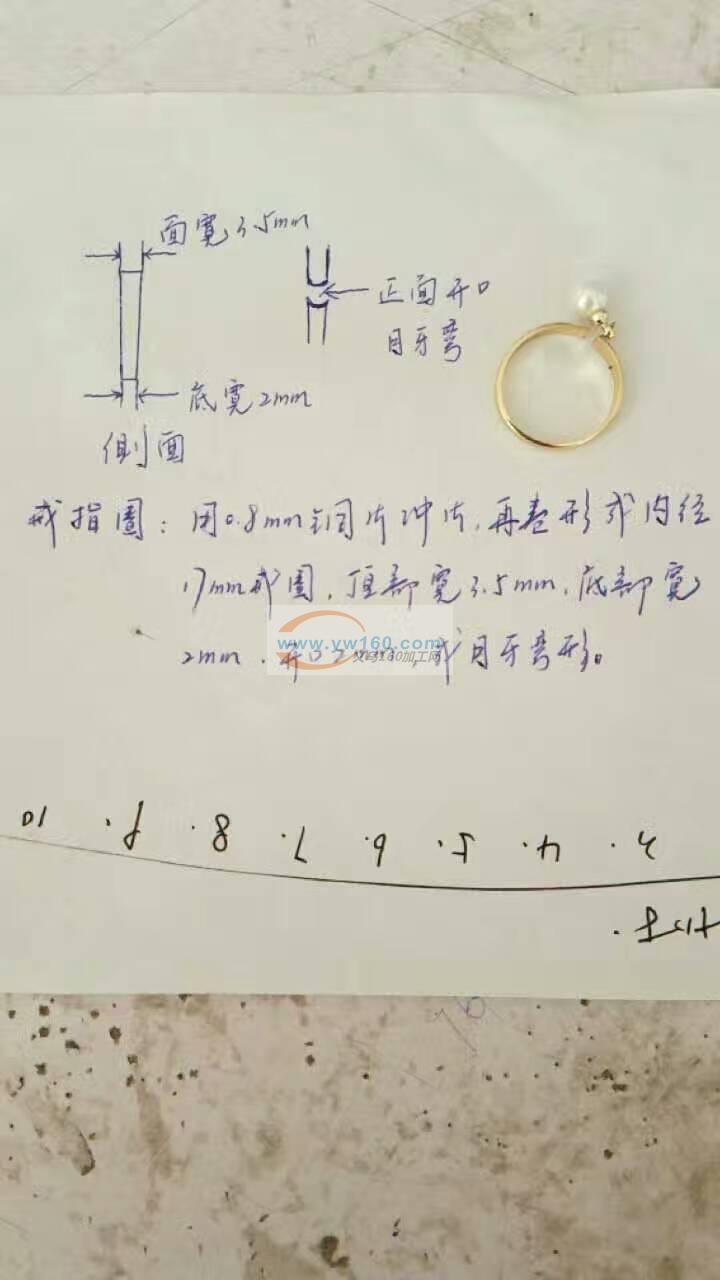 面寬3.5mm
正面开口
月牙弯
底寬2mm
侧面
戒指圈：用0.8mm铜片冲片，再卷形成内径
17mm戒圈，顶部寬3.5mm，底部寬
2mm，开口
成月牙弯形。
www.yw160.com
加工网
10 8 7 6 5 4 3